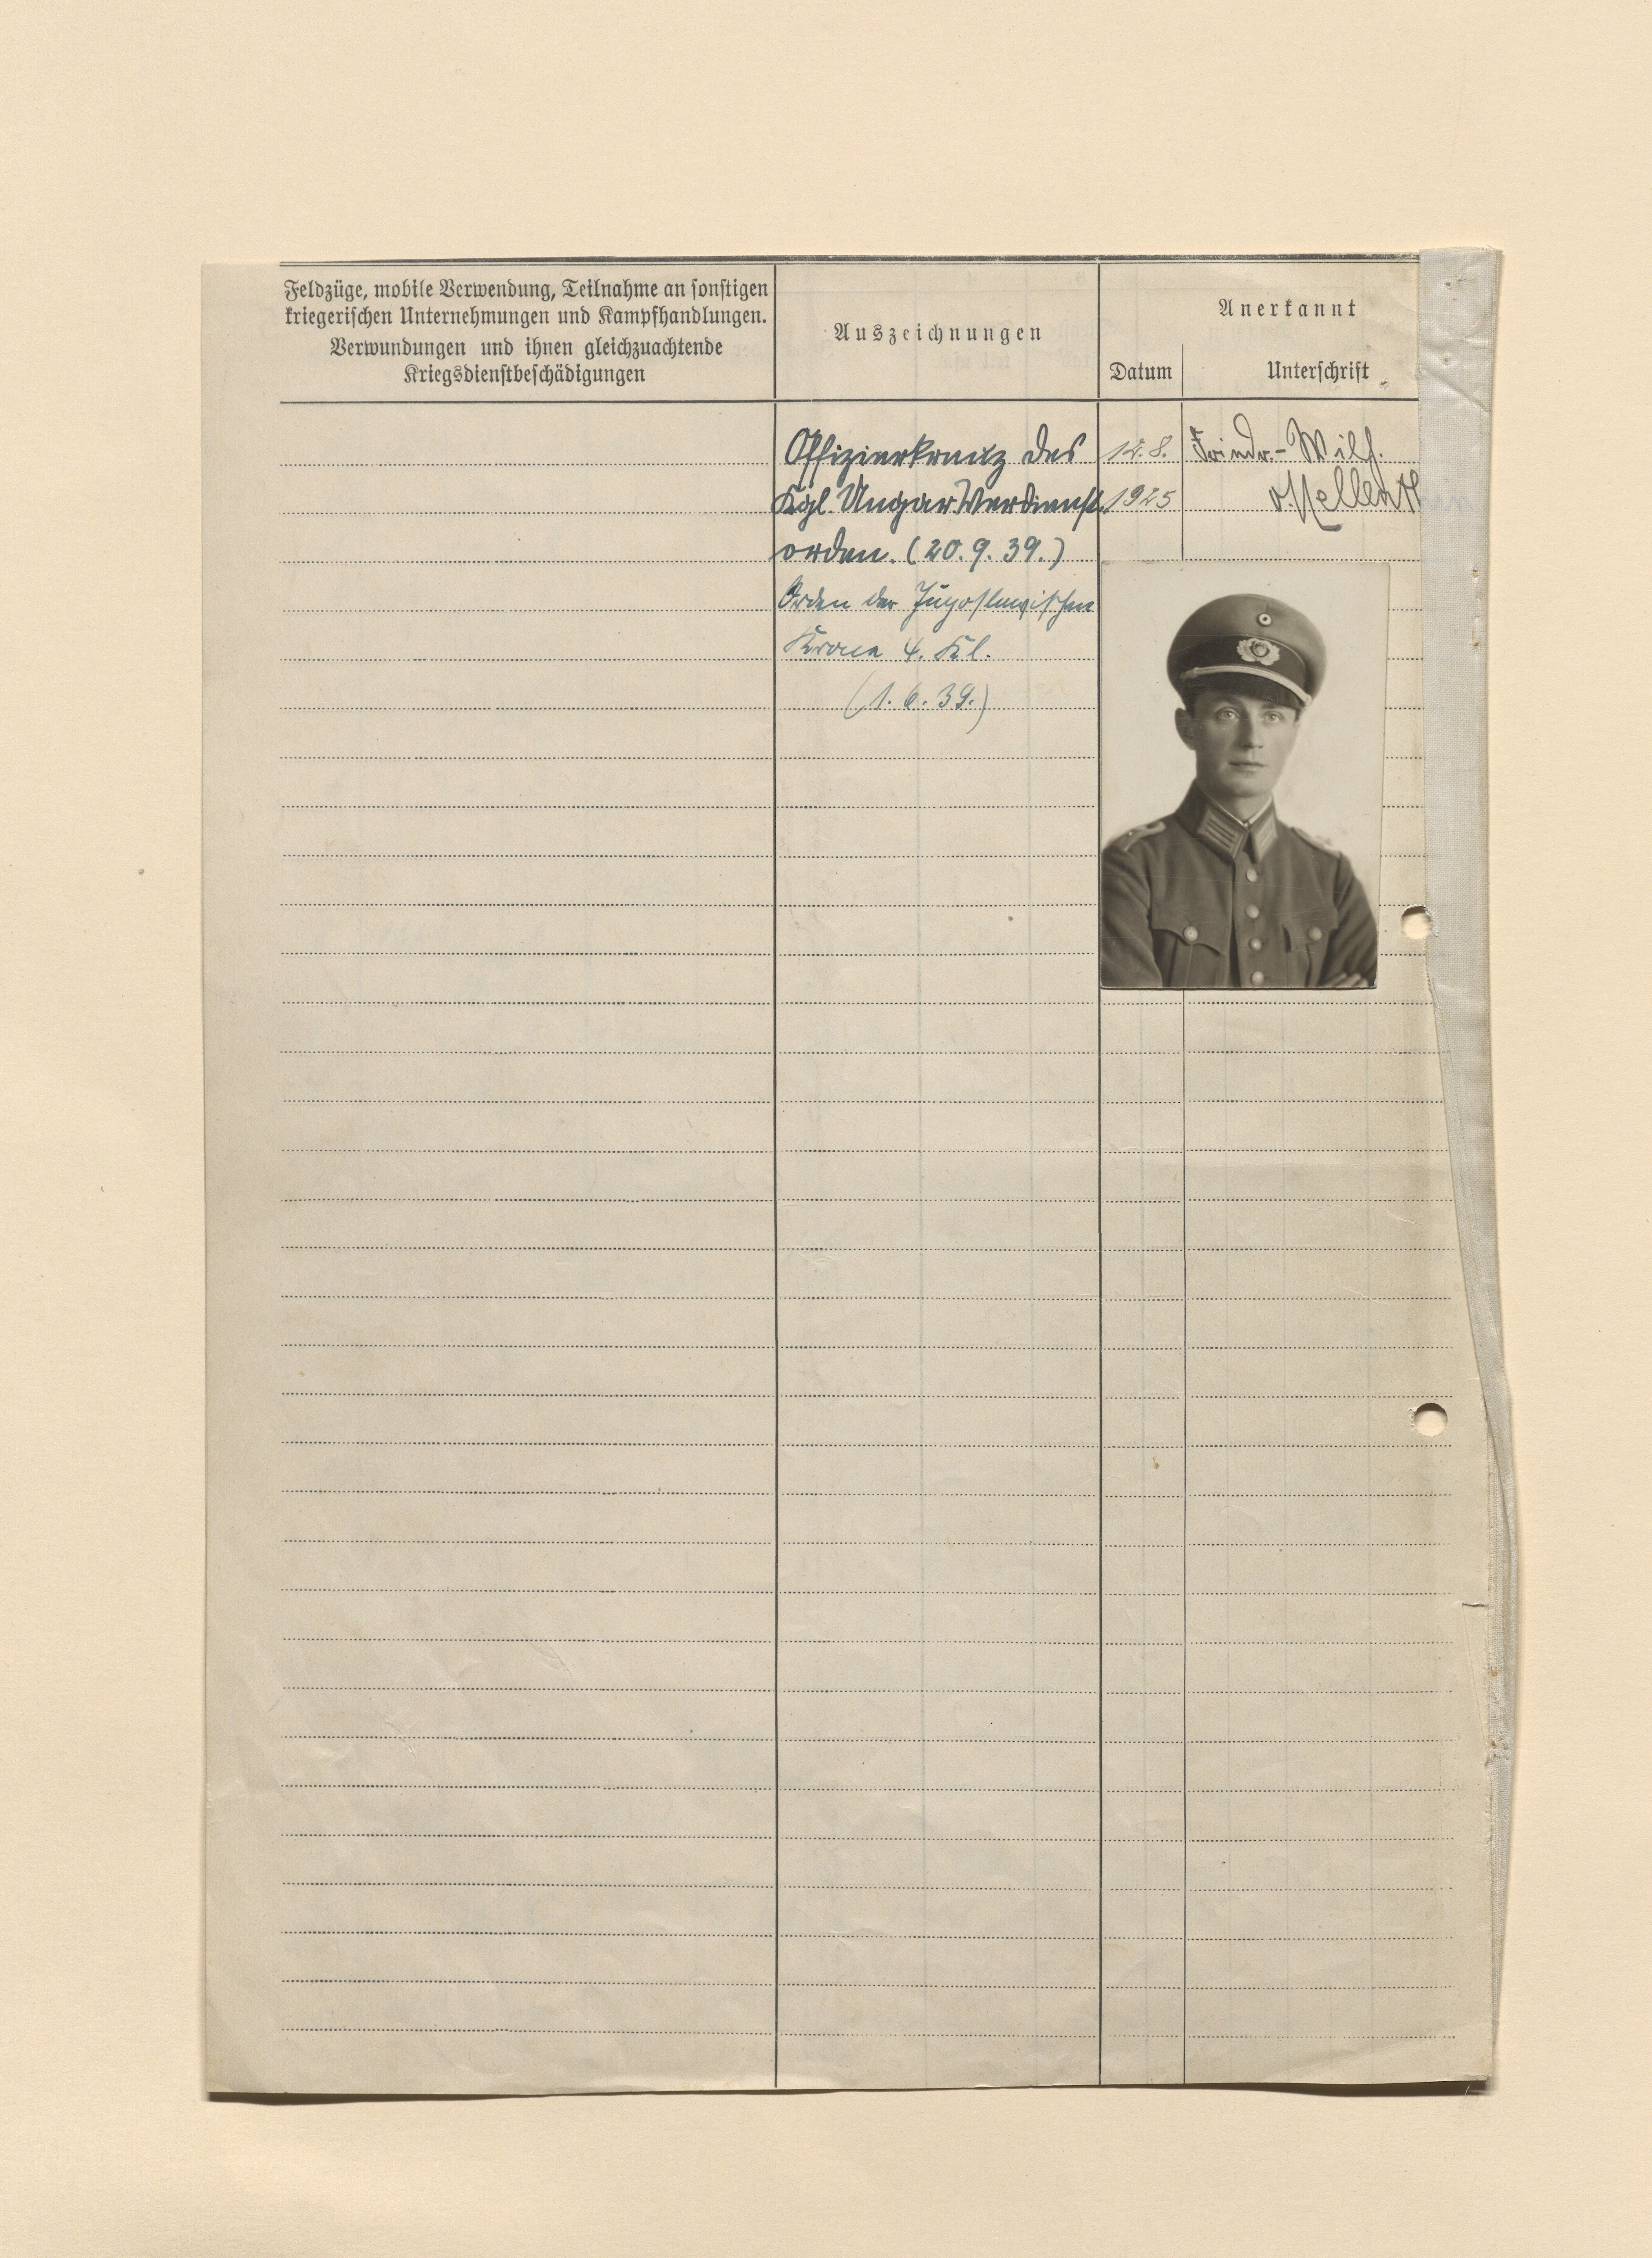 Feldzüge, mobile Verwendung, Teilnahme an sonstigen
kriegerischen Unternehmungen und Kampfhandlungen.
Verwundungen und ihnen gleichzuachtende
Kriegsdienstbeschädigungen
Auszeichnungen
Anerkannt
Datum
Unterschrift
Offizierkreuz des
Kgl. Ungar. Verdienst-
orden. (20. 9. 39.)
Orden der Jugoslawischen
Krone 4. Kl.
(1. 6. 39.)
12. 8.
1925
Friedr.- Wilh.
v. Mellenth